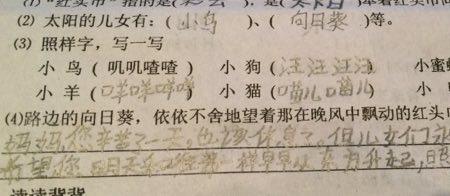 (2) 太阳的儿女有：( 小鸟 )、( 向日葵 )等。
(3) 照样字，写一写
小 鸟 ( 叽叽喳喳 ) 小 狗 ( 汪汪汪汪 小蜜
小 羊 ( 咩咩咩咩 ) 小 猫 ( 喵儿喵儿 ) 小
(4)路边的向日葵，依依不舍地望着那在晚风中飘动的红头巾
妈妈，您辛苦了一天，也该休息了。但儿女们
希望您 明天 一样早早从东方升起，
读读背背